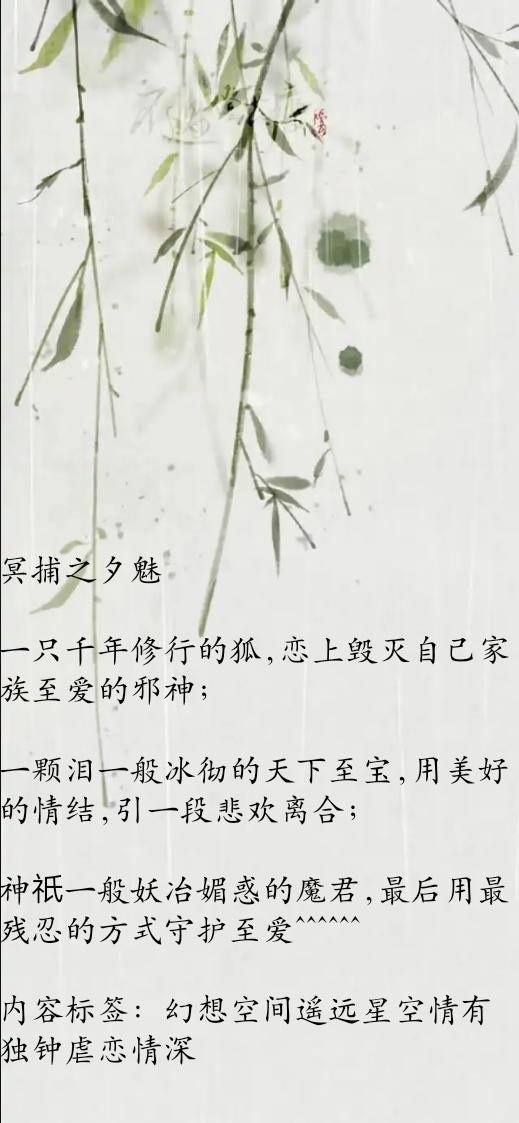 冥捕之夕魅
一只千年修行的狐,恋上毁灭自己家
族至爱的邪神;
一颗泪一般冰彻的天下至宝,用美好
的情结,引一段悲欢离合;
神祇一般妖冶媚惑的魔君,最后用最
残忍的方式守护至爱^^^^^^
内容标签: 幻想空间遥远星空情有
独钟虐恋情深